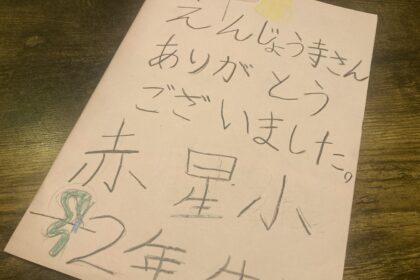 えんじょう寺さん
ありがとう
ございました。
赤星小
2年生